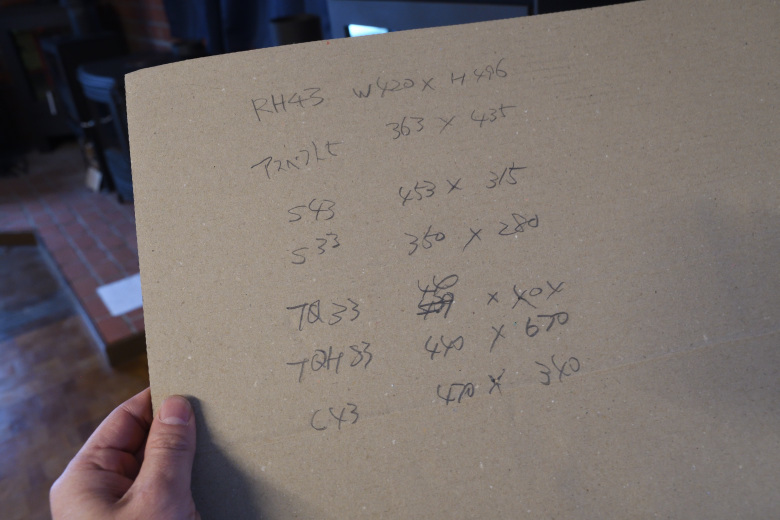 RH43 W420 x H496
アスペクト 363 x 435
S43 453 x 315
S33 350 x 280
TQ33 440 x 40x
TQH33 440 x 670
C43 470 x 340